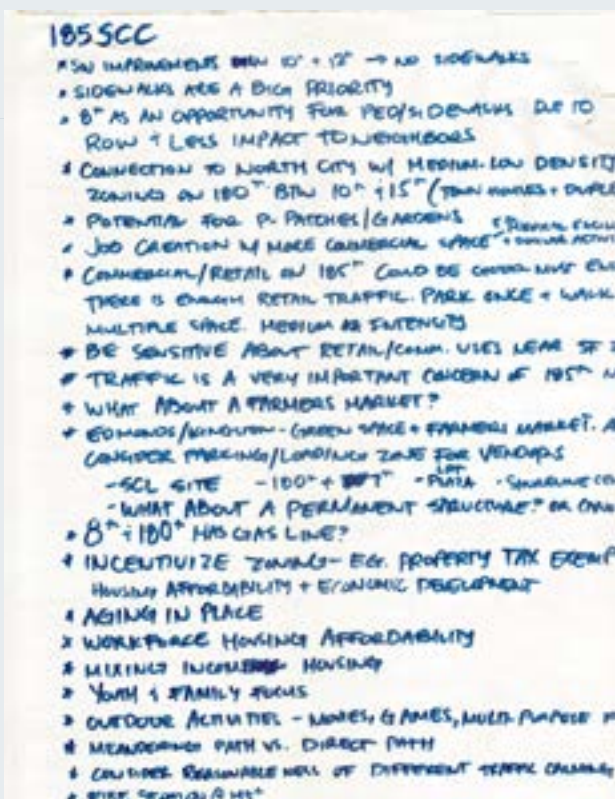 185SCC
* SW IMPROVEMENTS BTW 10th + 12th → NO SIDEWALKS
* SIDEWALKS ARE A BIG PRIORITY
* 8th AS AN OPPORTUNITY FOR PED/SIDEWALKS DUE TO
ROW + LESS IMPACT TO NEIGHBORS
* CONNECTION TO NORTH CITY W/ MEDIUM-LOW DENSITY
ZONING ON 180th BTW 10th + 15th (TOWN HOMES +
* POTENTIAL FOR P-PATCHES/GARDENS
* JOB CREATION W/ MORE COMMERCIAL SPACE
* COMMERCIAL/RETAIL ON 185th COULD BE GOOD MUST
THERE IS ENOUGH RETAIL TRAFFIC. PARK ONCE + WALK
MULTIPLE SPACE. MEDIUM INTENSITY
* BE SENSITIVE ABOUT RETAIL/COMM. USES NEAR SF
* TRAFFIC IS A VERY IMPORTANT CONCERN OF 185th
* WHAT ABOUT A FARMERS MARKET?
* EDMONDS/KINGSTON - GREEN SPACE + FARMERS MARKET.
CONSIDER PARKING/LOADING ZONE FOR VENDORS
- SCL SITE - 180th + 7th - PLAZA - SHORELINE
- WHAT ABOUT A PERMANENT STRUCTURE? OR
* 8th + 180th HAS GAS LINE?
* INCENTIVIZE ZONING - EG. PROPERTY TAX
HOUSING AFFORDABILITY + ECONOMIC DEVELOPMENT
* AGING IN PLACE
* WORKFORCE HOUSING AFFORDABILITY
* MIXING INCOMES HOUSING
* YOUTH + FAMILY FOCUS
* OUTDOOR ACTIVITIES - MOVIES, GAMES, MULTI-PURPOSE
* MEANDERING PATH VS. DIRECT PATH
* CONSIDER REASONABLENESS OF DIFFERENT TRAFFIC CALMING